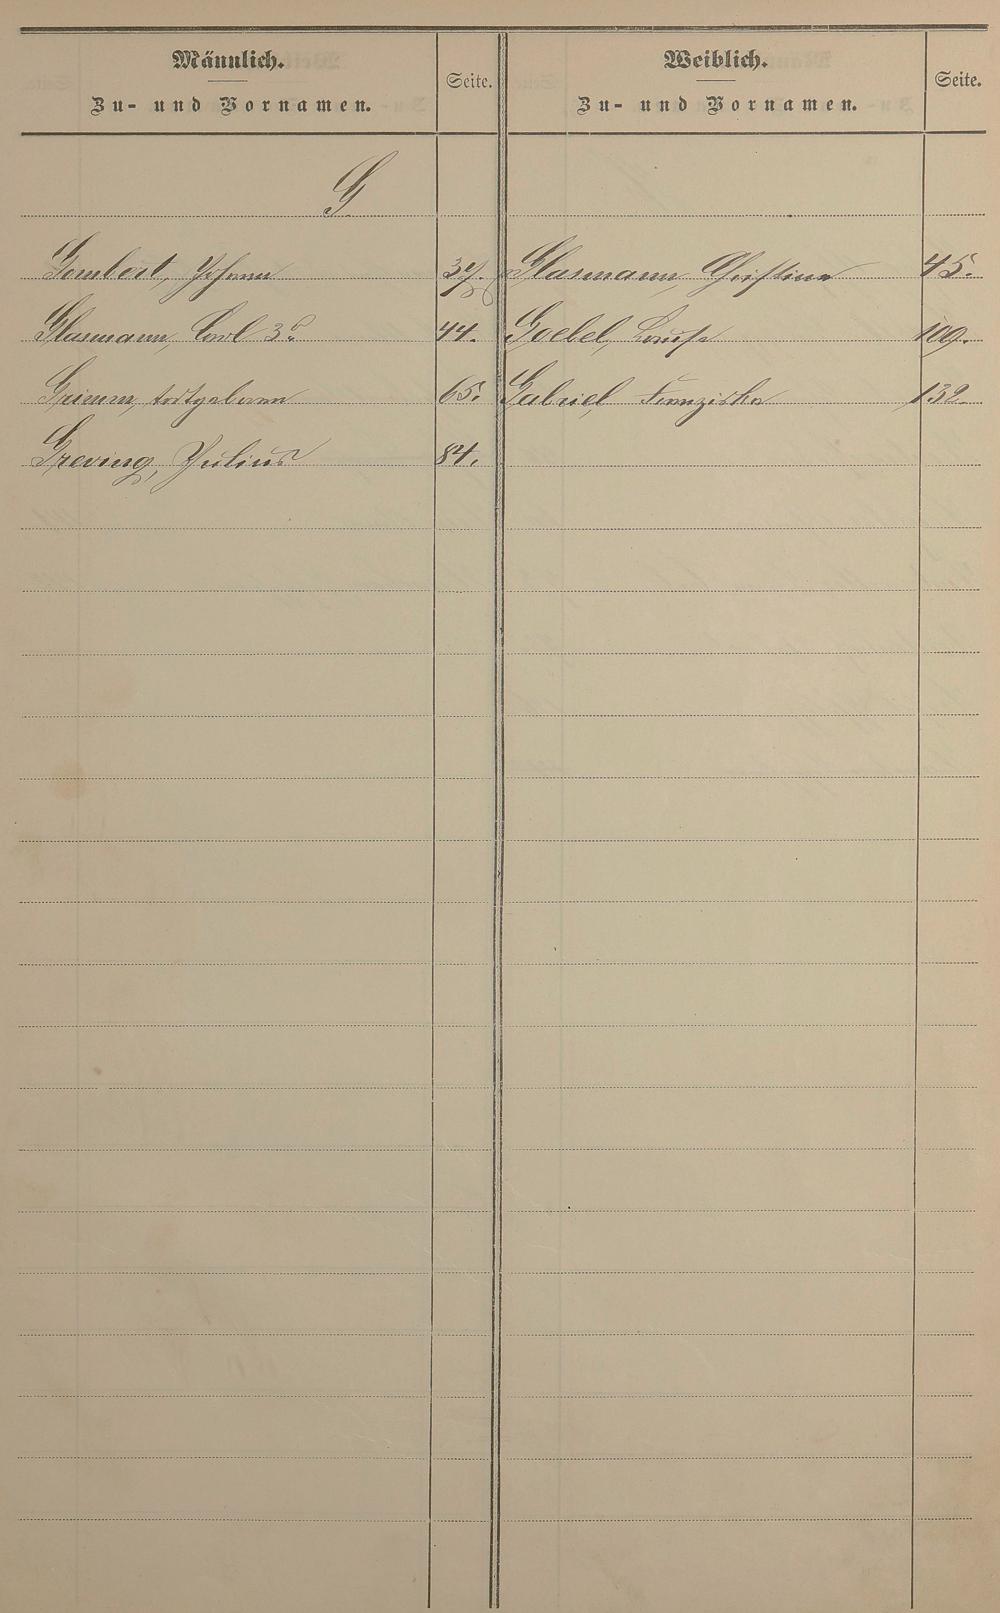 Männlich.
Zu- und Vornamen.
Seite.
Weiblich.
Zu- und Vornamen.
Seite.
G
Gombert, Johann 37.
Glasmann, Christina 45.
Glasmann, Carl 3r 44.
Goebel, Louise 109.
Grimm, todtgeboren 65.
Gabriel Franziska 132.
Greving, Julius 84.